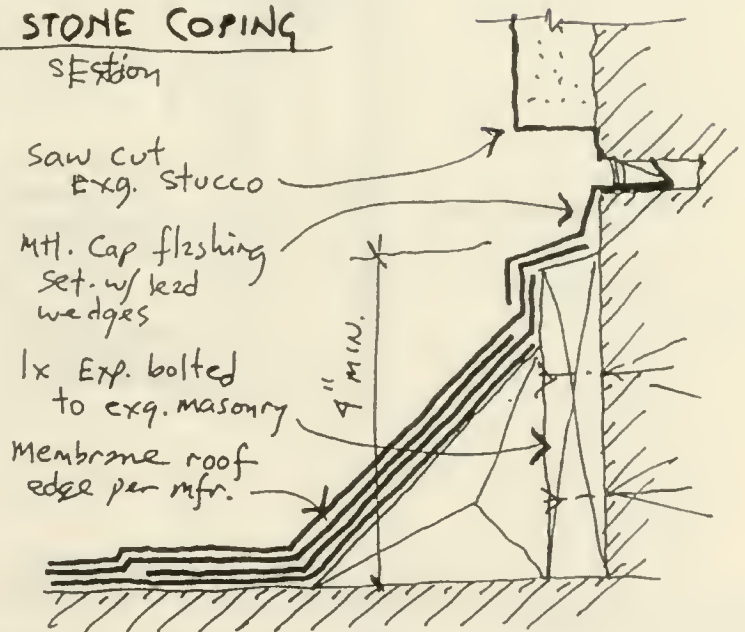 STONE COPING
SEction
saw cut
Exg. Stucco
Mtl. Cap flashing
set. w/ lead
wedges
1x Exp. bolted
to exg. masonry
Membrane roof
edge per mfr.
4" MIN.